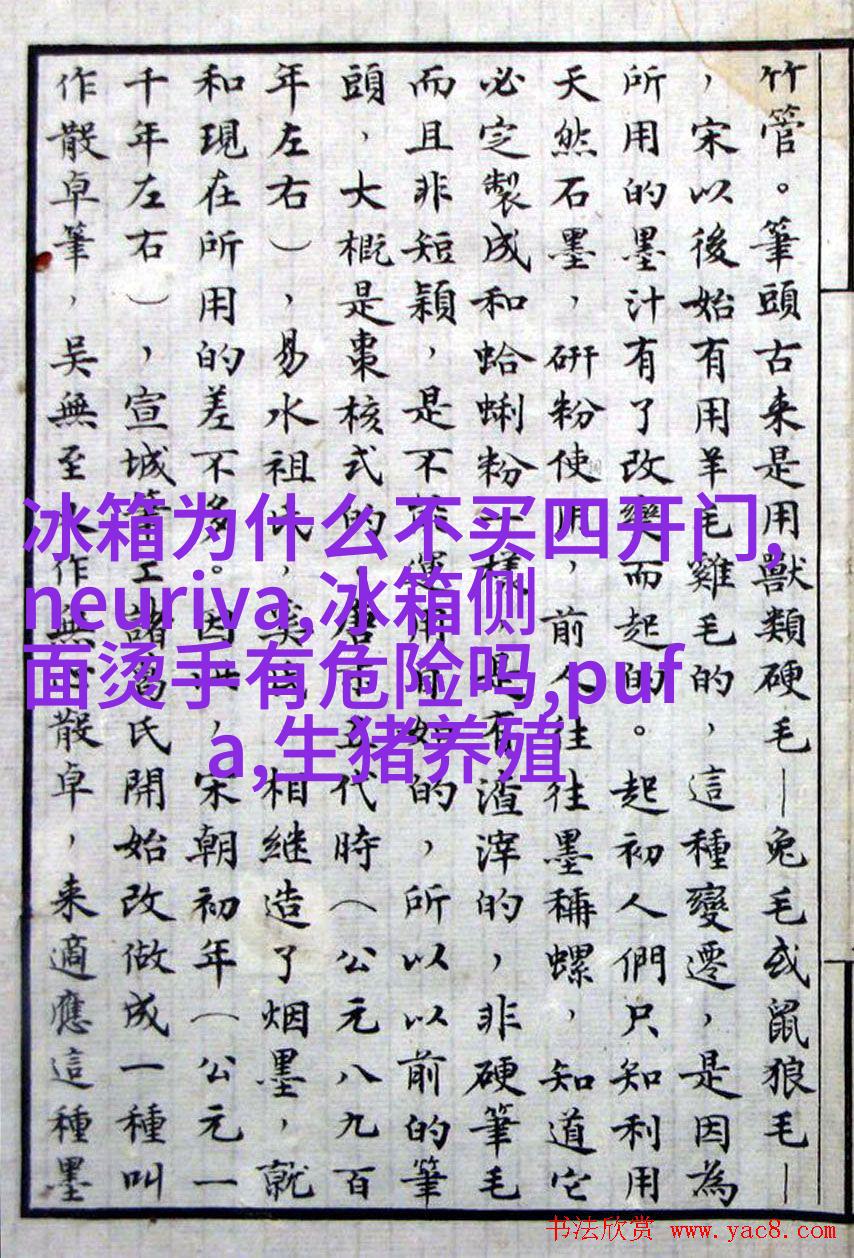 竹管。筆頭古来是用獸類硬毛—兔毛或鼠狼毛—
，宋以後始有用羊毛雞毛的，這種變遷，是因為
所用的墨汁有了改變而起的。起初人們只知利用
天然石墨，研粉使用，前人往往墨稱螺，知道它
必定製成和蛤蜊粉一樣，是有渣滓的，非硬筆毛
而且非短穎，是不運用自如的，所以以前的筆
頭，大概是棗核式的，唐五代時（公元八九百
年左右），易水祖氏，奚氏，相継造了烟墨，就
和現在所用的差不多。因，宋朝初年（公元一
千年左右），宣城筆工諸葛氏開始改做成一種叫
作散卓筆，吴無至作無散卓，来適應這種墨
冰箱为什么不买四开门,
neuriva,冰箱侧
面烫手有危险吗,puf
a,生猪养殖
书法欣赏 www.yac8.com